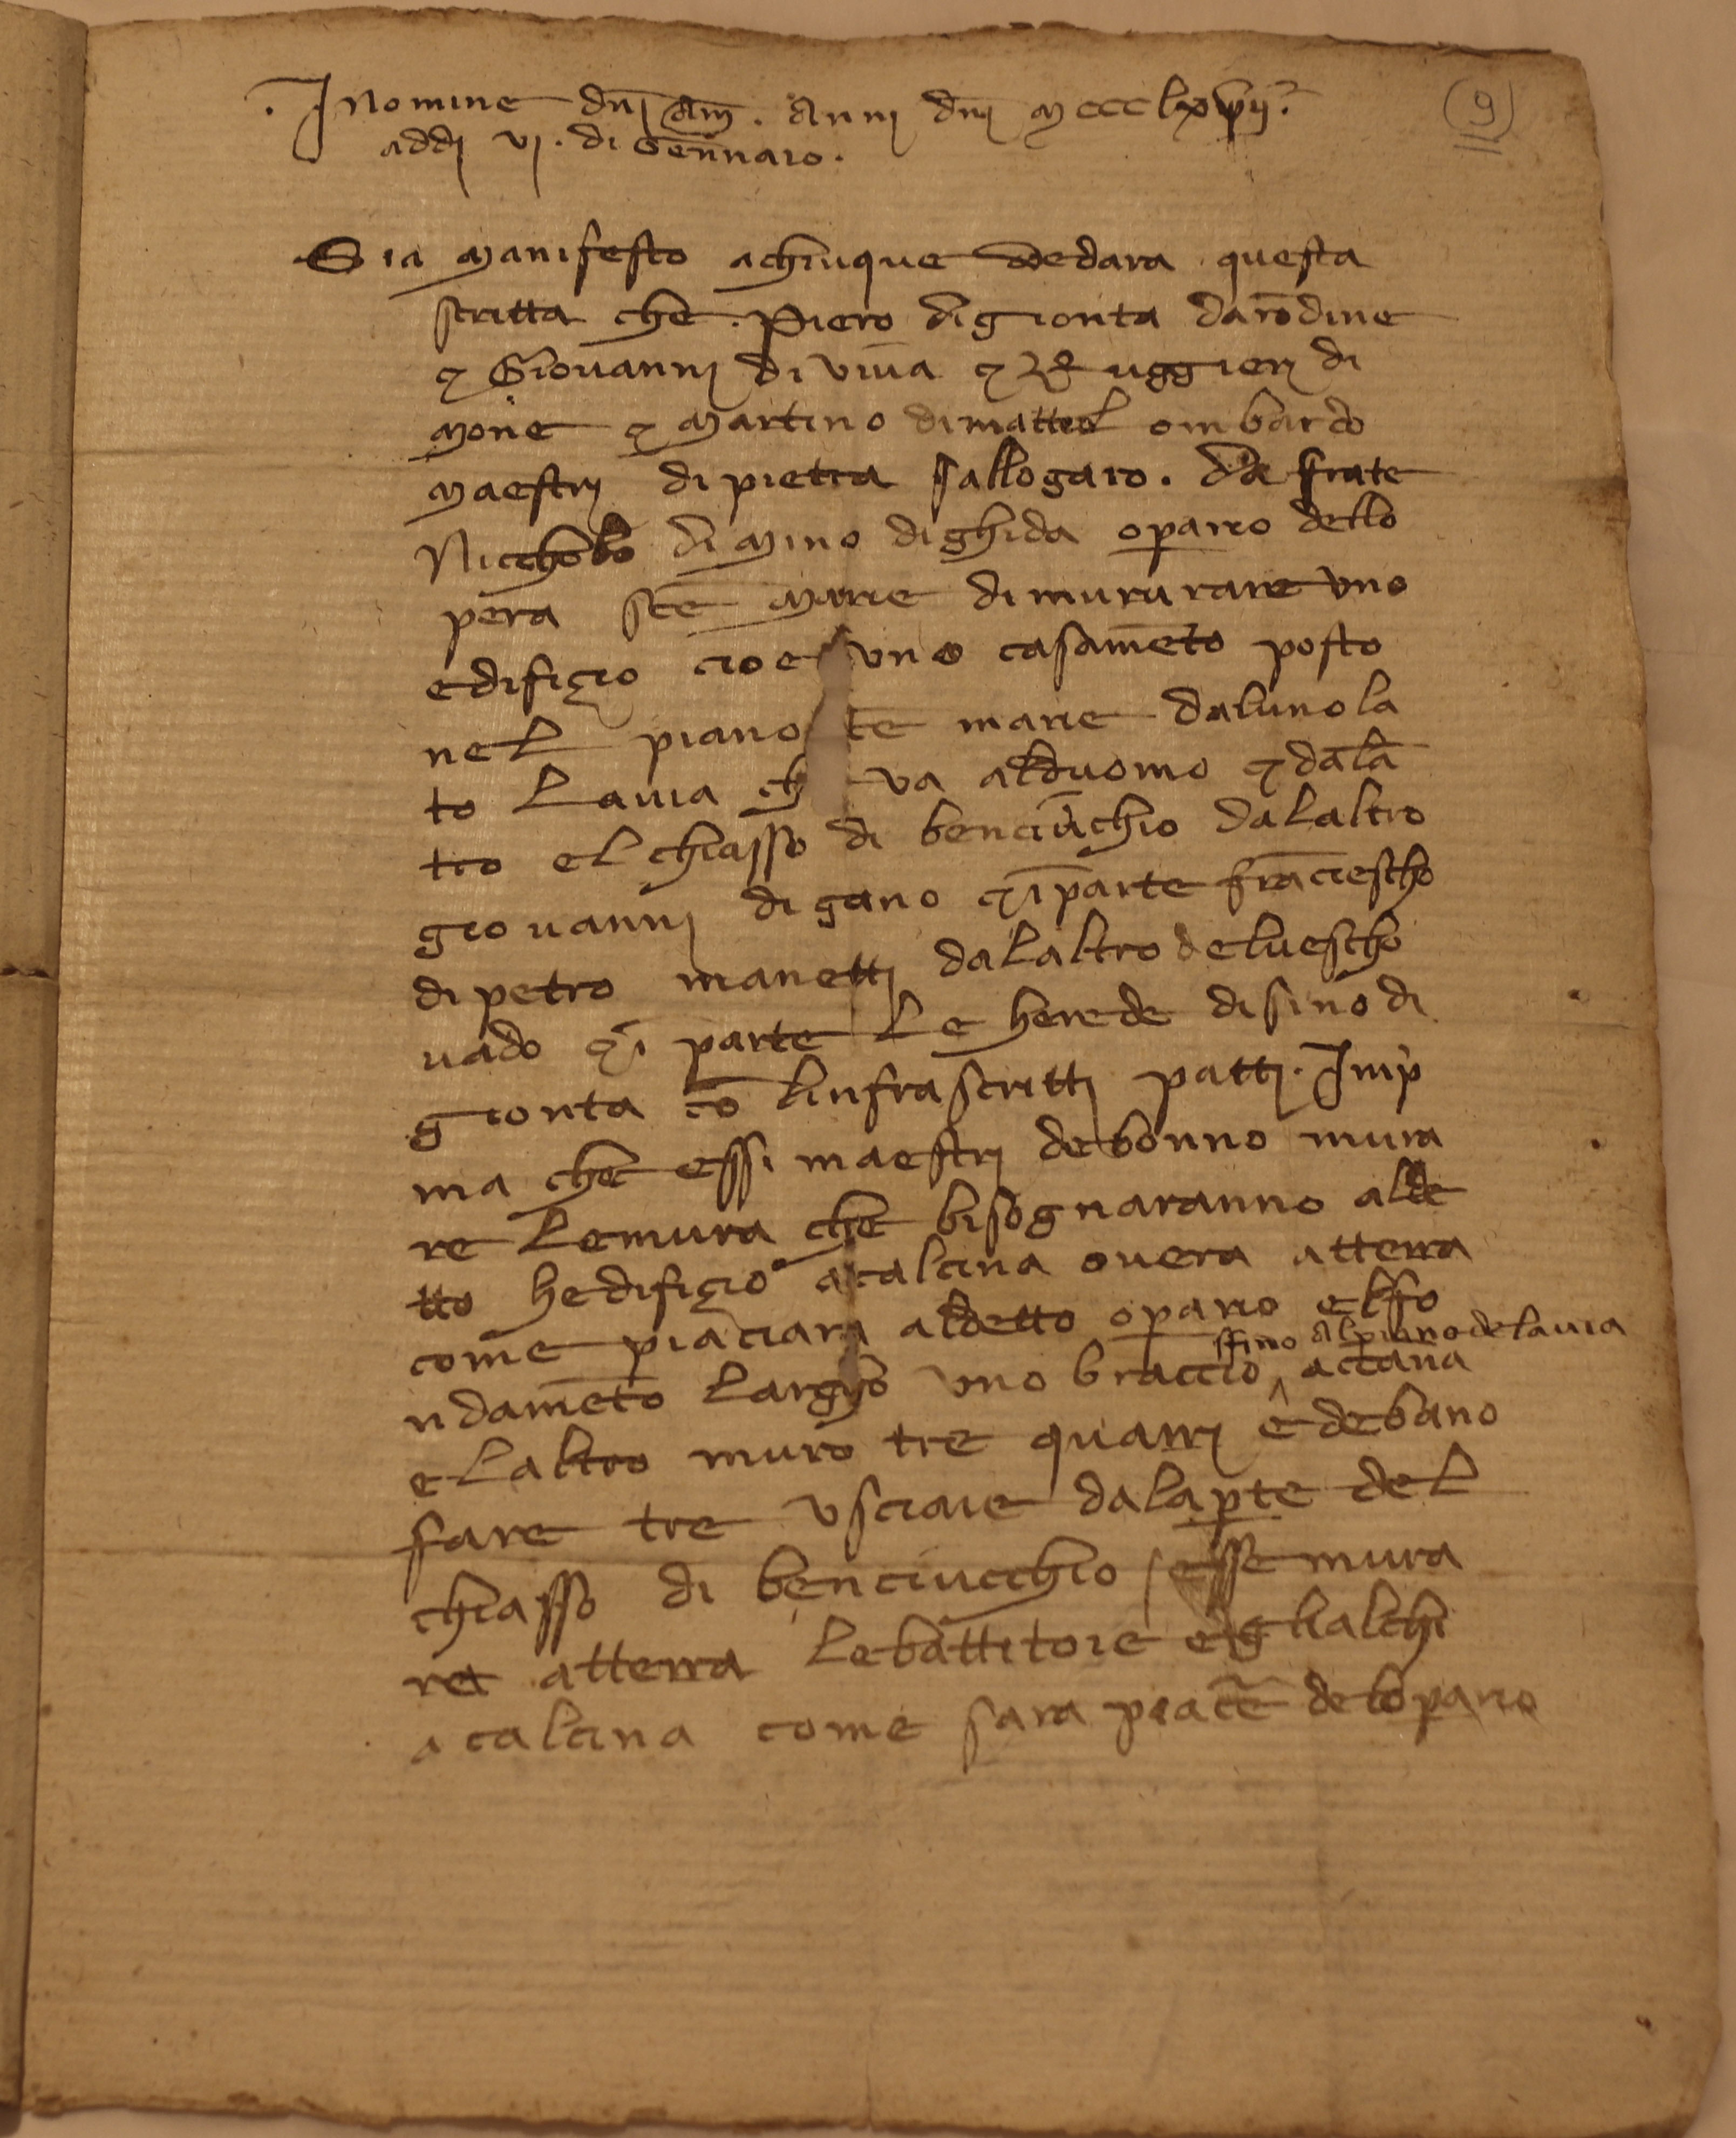 . Inomine dnj am . Anni dnj Mccclxvij.
addj vj . di Gennaro .
(9)
Sia manifesto achiuque vedara questa
scritta che . Piero digionta darodine
⁊ Giovannj di viva ⁊ Ruggierj di
mone ⁊ Martino dimatteo lombardo
maestrj di pietra sallogaro . Da frate
Niccholo di mino dighida oparo dello
pera sce marie dimurarare uno
edifiçio cioe uno casameto posto
nel piano te marie dalunola
to Lavia ch va alduomo ⁊ dala
tro el chiasso di benciuchio dalaltro
giovannj di gano ⁊ i parte franciescho
di petro manettj dalaltro deluescho
vado ⁊ i parte Le herede di sino di
gionta co linfrascrittj pattj . Imp
ma che essi maestrj debonno mura
re Lemura che bisognaranno alde
tto hedifiçio acalcina overa atterra
come piaciara aldetto opario elfo
ssino Alpiano delavia
ndameto Largho uno braccio ^ accana
e Laltro muro tre quarrj e debano
fare tre usciaie dalapte del
chiasso di benciucchio esse mura
re atterra Lebattitoie eglialchi
acalcina come sara piace delopario